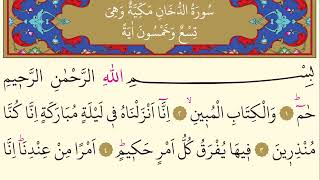 سُورَةُ الدُّخَانِ مَكِّيَّةٌ وَهِىَ
تِسْعٌ وَخَمْسُونَ اٰيَةً
بِسْمِ اللّٰهِ الرَّحْمٰنِ الرَّحِيمِ
حٰمٓ ﴿١﴾ وَالْكِتَابِ الْمُبِينِ ﴿٢﴾ اِنَّٓا اَنْزَلْنَاهُ فِى لَيْلَةٍ مُبَارَكَةٍ اِنَّا كُنَّا
مُنْذِرِينَ ﴿٣﴾ فِيهَا يُفْرَقُ كُلُّ اَمْرٍ حَكِيمٍ ﴿٤﴾ اَمْرًا مِنْ عِنْدِنَا اِنَّا